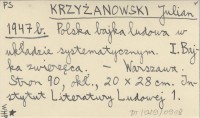 PS
KRZYŻANOWSKI Julian
1947 b. Polska bajka ludowa w
układzie systematycznym. I. Baj-
ka zwierzęca. – Warszawa.
Stron 90, okł., 20 x 28 cm. In-
stytut Literatury Ludowej 1.